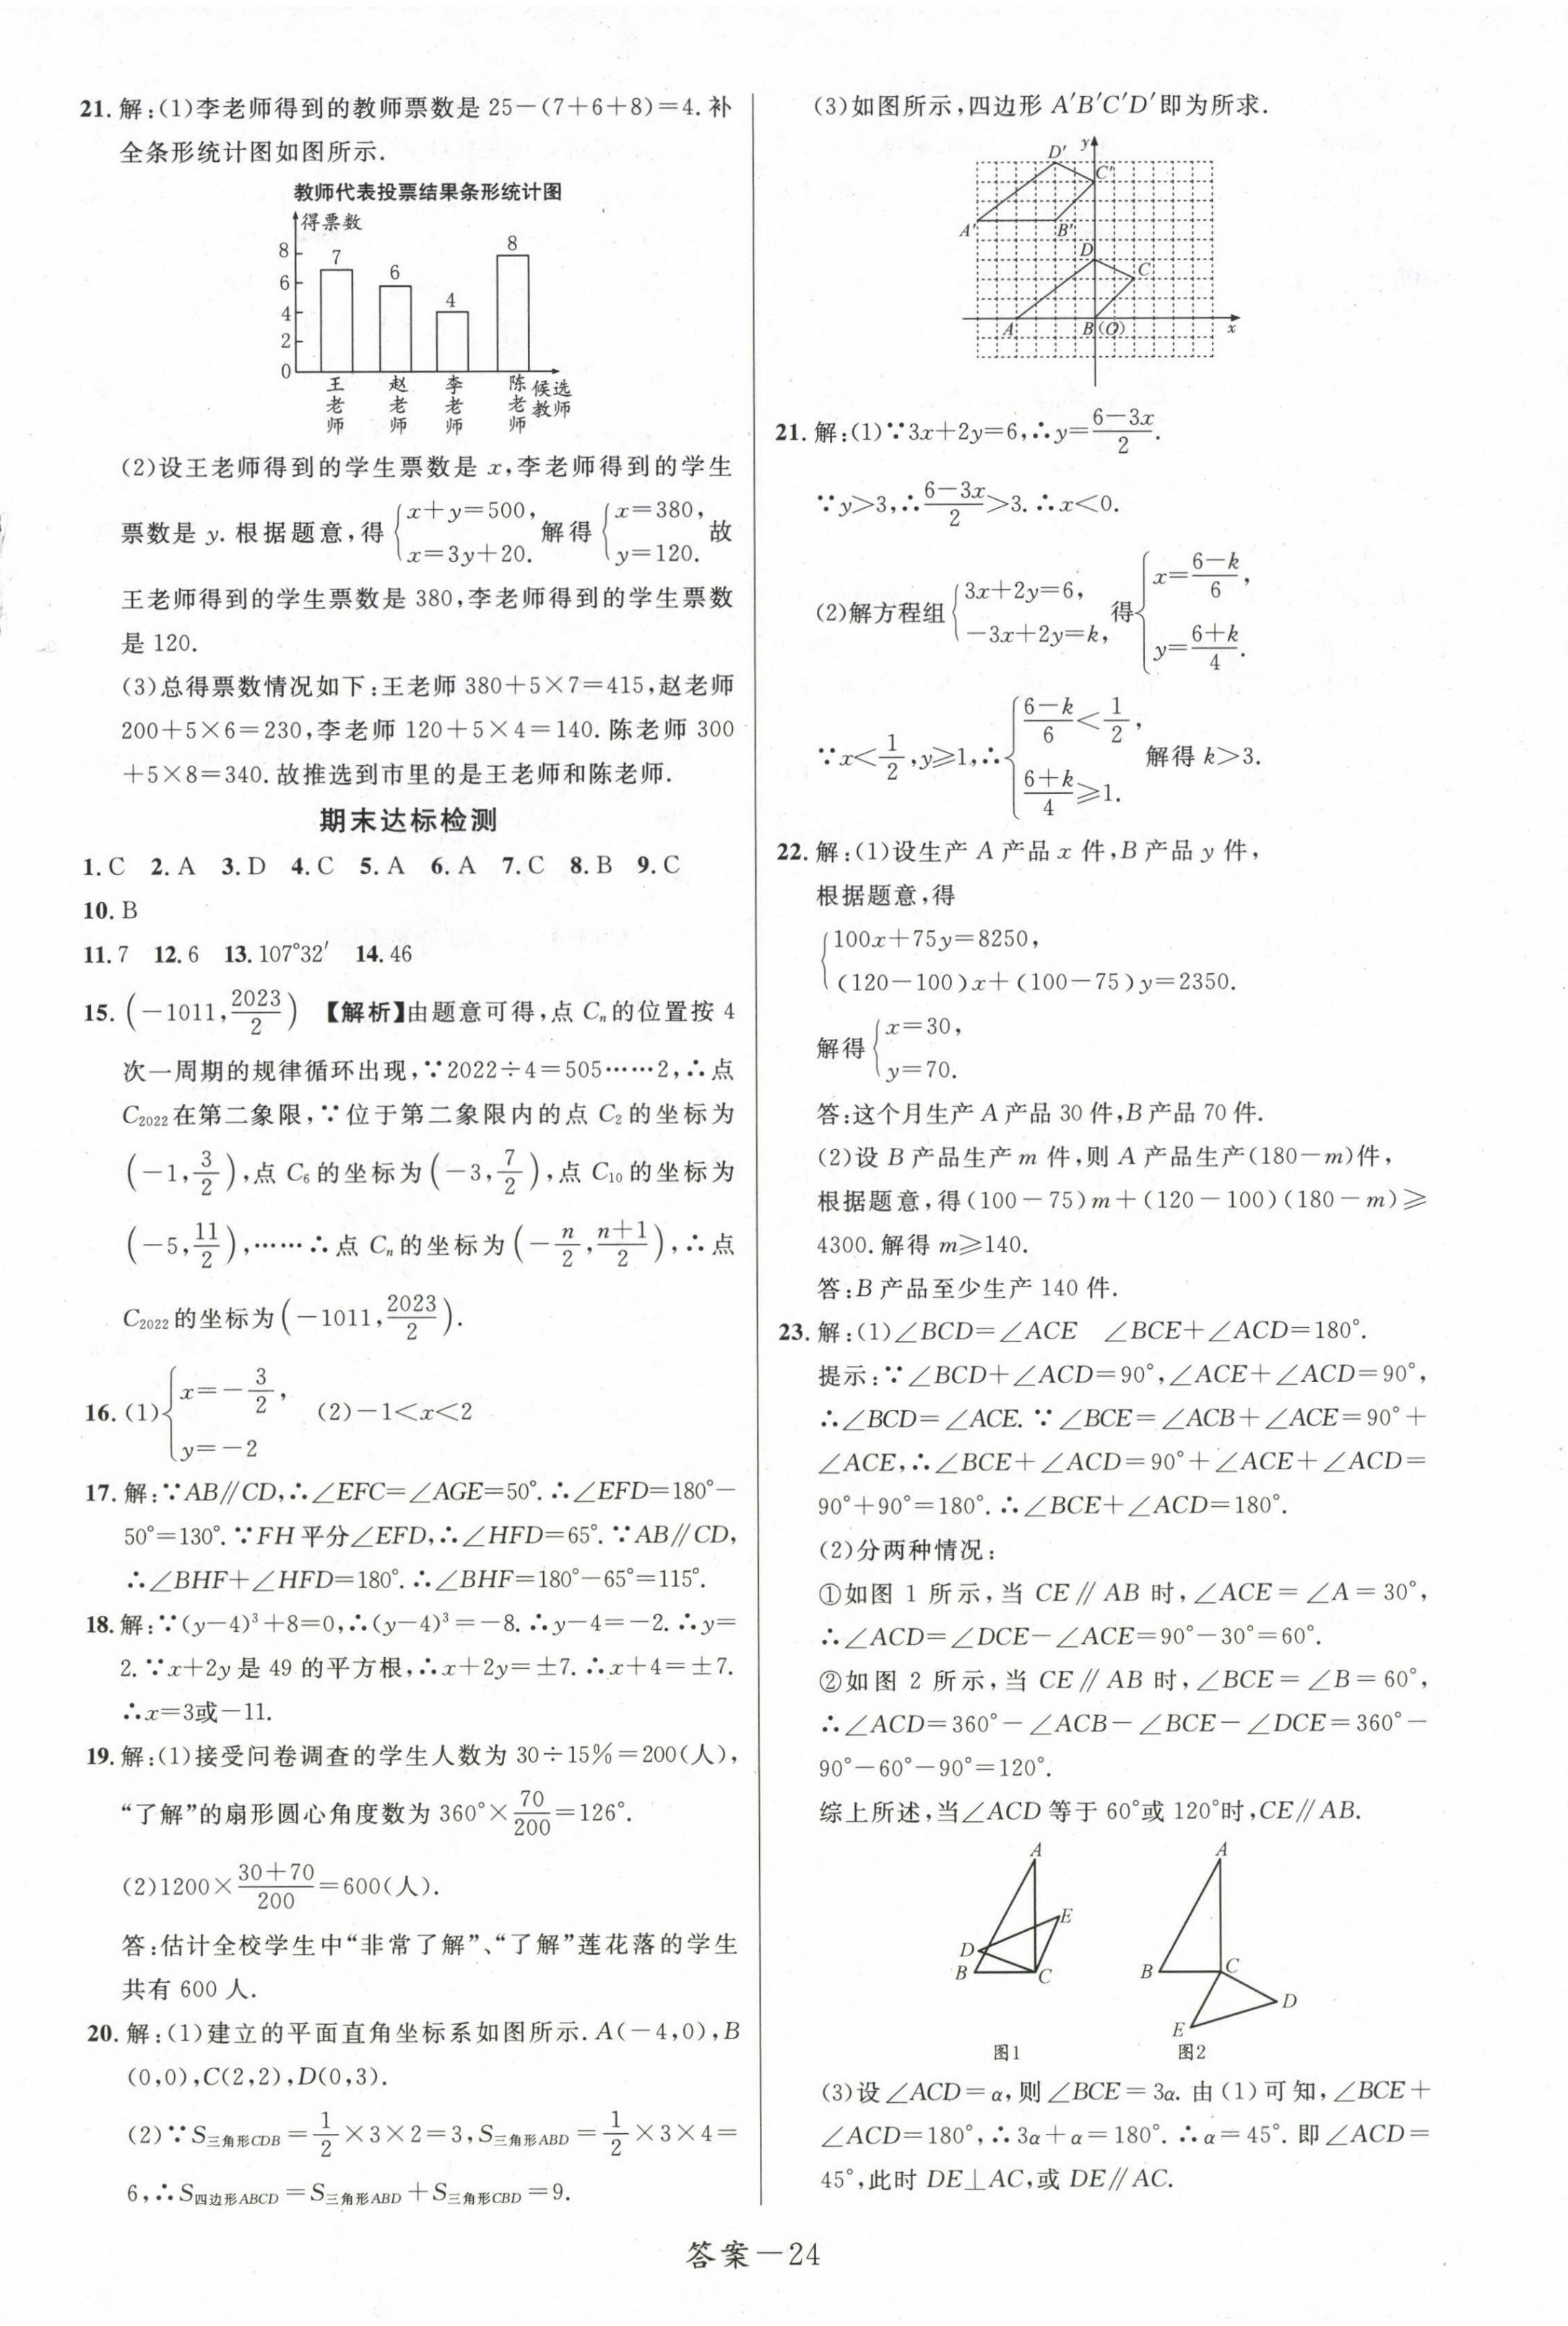 21. 解:(1)李老师得到的教师票数是 25-(7+6+8)=4. 补
全条形统计图如图所示.
教师代表投票结果条形统计图
得票数
8
6
4
2
0
7
6
4
8
王老师
赵老师
李老师
陈老师
候选
教师
(2)设王老师得到的学生票数是 x,李老师得到的学生
票数是 y. 根据题意,得 {x+y=500, x=3y+20. 解得 {x=380, y=120. 故
王老师得到的学生票数是 380,李老师得到的学生票数
是 120.
(3)总得票数情况如下:王老师 380+5×7=415,赵老师
200+5×6=230,李老师 120+5×4=140. 陈老师 300
+5×8=340. 故推选到市里的是王老师和陈老师.
期末达标检测
1. C 2. A 3. D 4. C 5. A 6. A 7. C 8. B 9. C
10. B
11. 7 12. 6 13. 107°32′ 14. 46
15. (-1011, 2023/2) 【解析】由题意可得,点 Cₙ 的位置按 4
次一周期的规律循环出现,∵2022÷4=505……2,∴点
C₂₀₂₂ 在第二象限,∵位于第二象限内的点 C₂ 的坐标为
(-1, 3/2),点 C₆ 的坐标为(-3, 7/2),点 C₁₀ 的坐标为
(-5, 11/2),……∴点 Cₙ 的坐标为(-n/2, (n+1)/2),∴点
C₂₀₂₂ 的坐标为(-1011, 2023/2).
16. (1){x=-3/2, y=-2 (2)-1<x<2
17. 解:∵AB∥CD,∴∠EFC=∠AGE=50°. ∴∠EFD=180°-
50°=130°. ∵FH 平分∠EFD,∴∠HFD=65°. ∵AB∥CD,
∴∠BHF+∠HFD=180°. ∴∠BHF=180°-65°=115°.
18. 解:∵(y-4)³+8=0,∴(y-4)³=-8. ∴y-4=-2. ∴y=
2. ∵x+2y 是 49 的平方根,∴x+2y=±7. ∴x+4=±7.
∴x=3或-11.
19. 解:(1)接受问卷调查的学生人数为 30÷15%=200(人),
“了解”的扇形圆心角度数为 360°×70/200=126°.
(2)1200×(30+70)/200=600(人).
答:估计全校学生中“非常了解”、“了解”莲花落的学生
共有 600 人.
20. 解:(1)建立的平面直角坐标系如图所示. A(-4,0),B
(0,0),C(2,2),D(0,3).
(2)∵S三角形CDB=1/2×3×2=3,S三角形ABD=1/2×3×4=
6,∴S四边形ABCD=S三角形ABD+S三角形CBD=9.
(3)如图所示,四边形 A′B′C′D′即为所求.
D′ y
C′
A′ B′
D
C
A B(O) x
21. 解:(1)∵3x+2y=6,∴y=(6-3x)/2.
∵y>3,∴(6-3x)/2>3. ∴x<0.
(2)解方程组{3x+2y=6, -3x+2y=k, 得{x=(6-k)/6, y=(6+k)/4.
∵x<1/2,y≥1,∴{(6-k)/6<1/2, (6+k)/4≥1. 解得 k>3.
22. 解:(1)设生产 A 产品 x 件,B 产品 y 件,
根据题意,得
{100x+75y=8250,
(120-100)x+(100-75)y=2350.
解得{x=30, y=70.
答:这个月生产 A 产品 30 件,B 产品 70 件.
(2)设 B 产品生产 m 件,则 A 产品生产(180-m)件,
根据题意,得(100-75)m+(120-100)(180-m)≥
4300. 解得 m≥140.
答:B 产品至少生产 140 件.
23. 解:(1)∠BCD=∠ACE ∠BCE+∠ACD=180°.
提示:∵∠BCD+∠ACD=90°,∠ACE+∠ACD=90°,
∴∠BCD=∠ACE. ∵∠BCE=∠ACB+∠ACE=90°+
∠ACE,∴∠BCE+∠ACD=90°+∠ACE+∠ACD=
90°+90°=180°. ∴∠BCE+∠ACD=180°.
(2)分两种情况:
①如图 1 所示,当 CE∥AB 时,∠ACE=∠A=30°,
∴∠ACD=∠DCE-∠ACE=90°-30°=60°.
②如图 2 所示,当 CE∥AB 时,∠BCE=∠B=60°,
∴∠ACD=360°-∠ACB-∠BCE-∠DCE=360°-
90°-60°-90°=120°.
综上所述,当∠ACD 等于 60°或 120°时,CE∥AB.
A
E
D
B C
图1
A
B C
D
E
图2
(3)设∠ACD=α,则∠BCE=3α. 由(1)可知,∠BCE+
∠ACD=180°,∴3α+α=180°. ∴α=45°. 即∠ACD=
45°,此时 DE⊥AC,或 DE∥AC.
答案-24